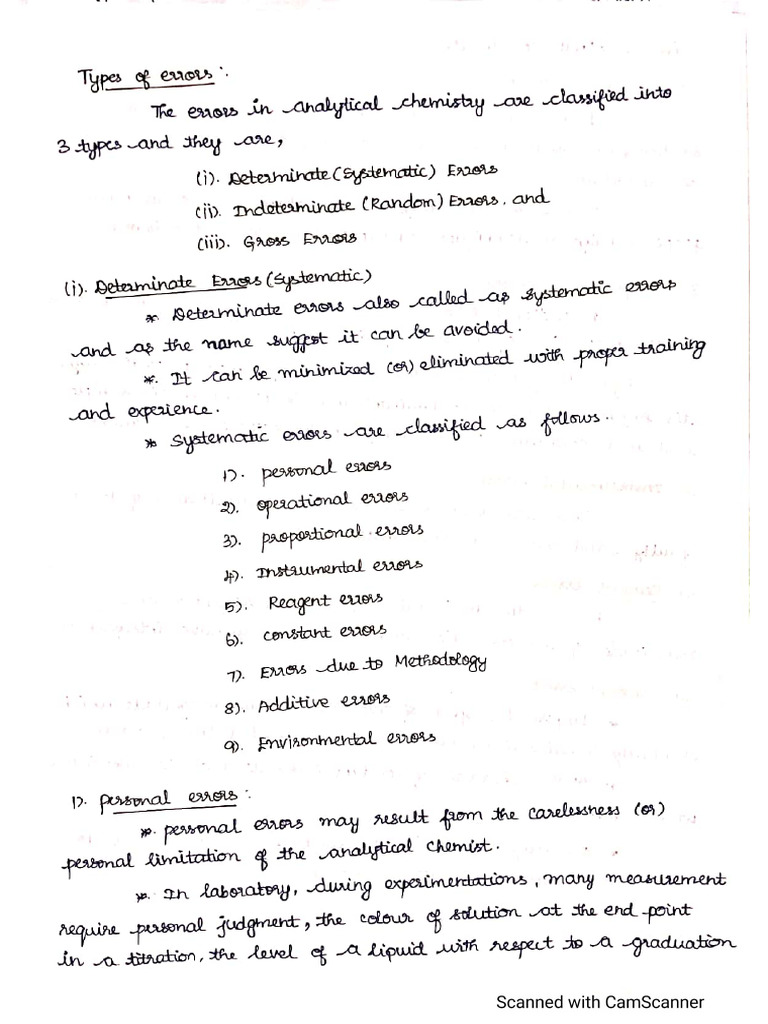 Types of errors:
The errors in analytical chemistry are classified into
3 types and they are,
(i). Determinate (Systematic) Errors
(ii). Indeterminate (Random) Errors. and
(iii). Gross Errors
(i). Determinate Errors (Systematic)
* Determinate errors also called as systematic errors
and as the name suggest it can be avoided.
*. It can be minimized (or) eliminated with proper training
and experience.
* Systematic errors are classified as follows.
1). personal errors
2). operational errors
3). proportional errors
4). Instrumental errors
5). Reagent errors
6). constant errors
7). Errors due to Methodology
8). Additive errors
9). Environmental errors
1). personal errors:
*. personal errors may result from the carelessness (or)
personal limitation of the analytical chemist.
*. In laboratory, during experimentations, many measurement
require personal judgment, the colour of solution at the end-point
in a titration, the level of a liquid with respect to a graduation
Scanned with CamScanner